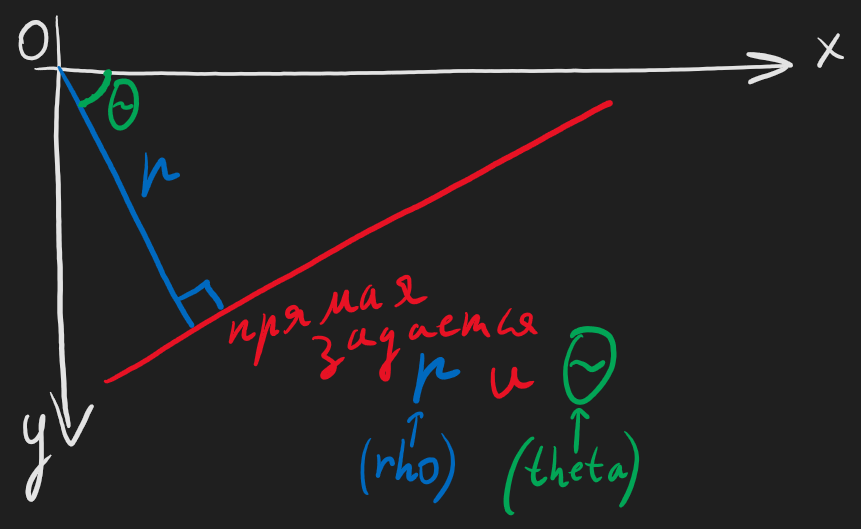 O
x
Θ
r
прямая
задается
r и Θ
(rho) (theta)
y